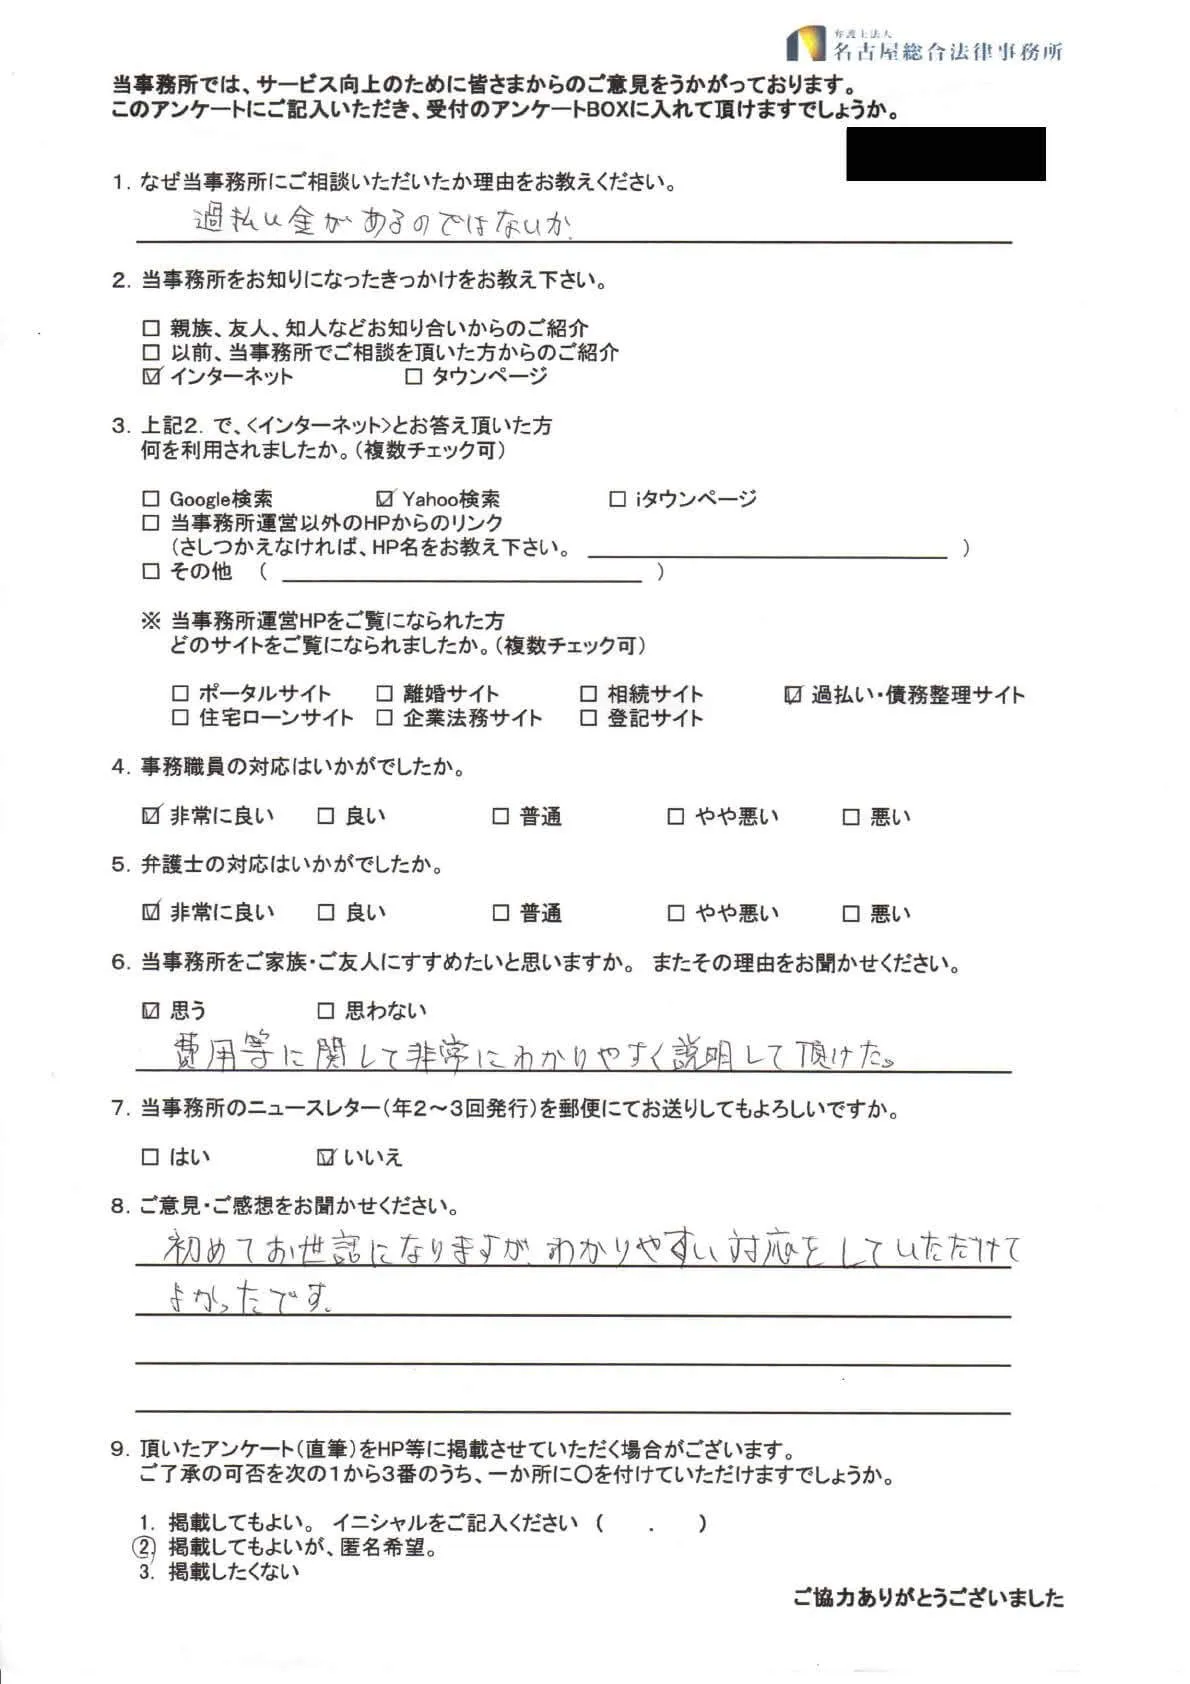 弁護士法人
名古屋総合法律事務所
当事務所では、サービス向上のために皆さまからのご意見をうかがっております。
このアンケートにご記入いただき、受付のアンケートBOXに入れて頂けますでしょうか。
1. なぜ当事務所にご相談いただいたか理由をお教えください。
過払い金があるのではないか.
2. 当事務所をお知りになったきっかけをお教え下さい。
□ 親族、友人、知人などお知り合いからのご紹介
□ 以前、当事務所でご相談を頂いた方からのご紹介
☑ インターネット □ タウンページ
3. 上記2. で、<インターネット>とお答え頂いた方
何を利用されましたか。(複数チェック可)
□ Google検索 ☑ Yahoo検索 □ iタウンページ
□ 当事務所運営以外のHPからのリンク
(さしつかえなければ、HP名をお教え下さい。 )
□ その他 ( )
※ 当事務所運営HPをご覧になられた方
どのサイトをご覧になられましたか。(複数チェック可)
□ ポータルサイト □ 離婚サイト □ 相続サイト ☑ 過払い・債務整理サイト
□ 住宅ローンサイト □ 企業法務サイト □ 登記サイト
4. 事務職員の対応はいかがでしたか。
☑ 非常に良い □ 良い □ 普通 □ やや悪い □ 悪い
5. 弁護士の対応はいかがでしたか。
☑ 非常に良い □ 良い □ 普通 □ やや悪い □ 悪い
6. 当事務所をご家族・ご友人にすすめたいと思いますか。 またその理由をお聞かせください。
☑ 思う □ 思わない
費用等に関して非常にわかりやすく説明して頂けた。
7. 当事務所のニュースレター(年2～3回発行)を郵便にてお送りしてもよろしいですか。
□ はい ☑ いいえ
8. ご意見・ご感想をお聞かせください。
初めてお世話になりますが、わかりやすい対応をしていただけて
よかったです.
9. 頂いたアンケート(直筆)をHP等に掲載させていただく場合がございます。
ご了承の可否を次の1から3番のうち、一か所に○を付けていただけますでしょうか。
1. 掲載してもよい。 イニシャルをご記入ください ( . )
2. 掲載してもよいが、匿名希望。
3. 掲載したくない
ご協力ありがとうございました